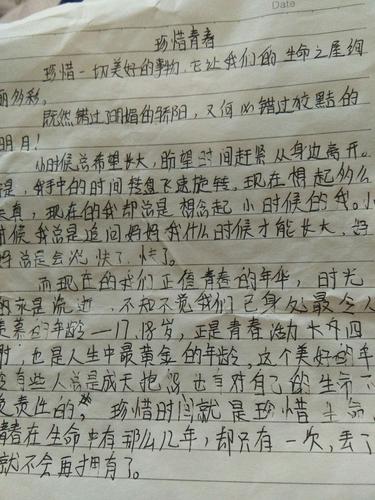 Date
珍惜青春
珍惜一切美好的事物,它让我们的生命之屋绚
丽多彩。
既然错过明媚的骄阳,又何必错过皎黠的
明月!
小时候总希望长大,盼望时间赶紧从身边离开。
是,我手中的时间转盘飞速旋转,现在想起多么
天真,现在的我却总是想念起小时候的我。小
时候我总是追问妈妈我什么时候才能长大,妈
妈总是会说,快了,快了。
而现在的我们正值青春的年华,时光
的永是流逝,不知不觉我们已身处最令人
羡慕的年龄——17、18岁,正是青春活力大开四
射,也是人生中最黄金的年龄,这个美好的年
有些人总是成天抱怨,也有对自己的生命不
负责任的,珍惜时间就是珍惜生命,
青春在生命中有那么几年,却只有一次,丢了
就不会再拥有了。